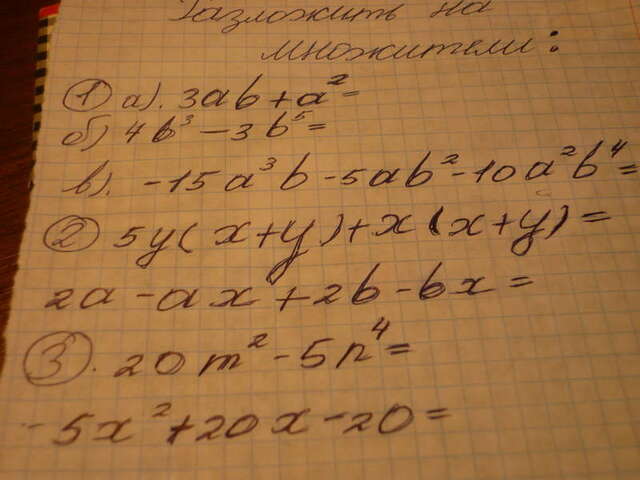 Разложить на
множители:
① а). 3ab + a² =
б) 4b³ - 3b⁵ =
в). -15a³b - 5ab² - 10a²b⁴ =
② 5y(x+y) + x(x+y) =
2a - ax + 2b - bx =
③. 20m² - 5n⁴ =
-5x² + 20x - 20 =